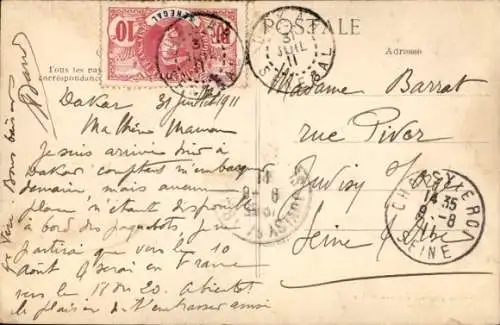 POSTALE
SÉNÉGAL
10
Tous les pays
correspondance
Adresse
Dakar 31 Juillet 1911
Ma Chère Maman
Je suis arrivé hier à
Dakar comptant m'embarquer
demain mais aucune
place n'étant disponible
à bord des paquebots, je ne
partirai que vers le 10
août & serai en France
vers le 18 ou 20. A bientôt
le plaisir de t'embrasser aussi
Je vous
Bons baisers
Madame Barrat
rue Pivor
Juvisy s/Orge
Seine & Oise
3 JUIL 11
SÉNÉGAL
14 35
8 -8
11
SEINE